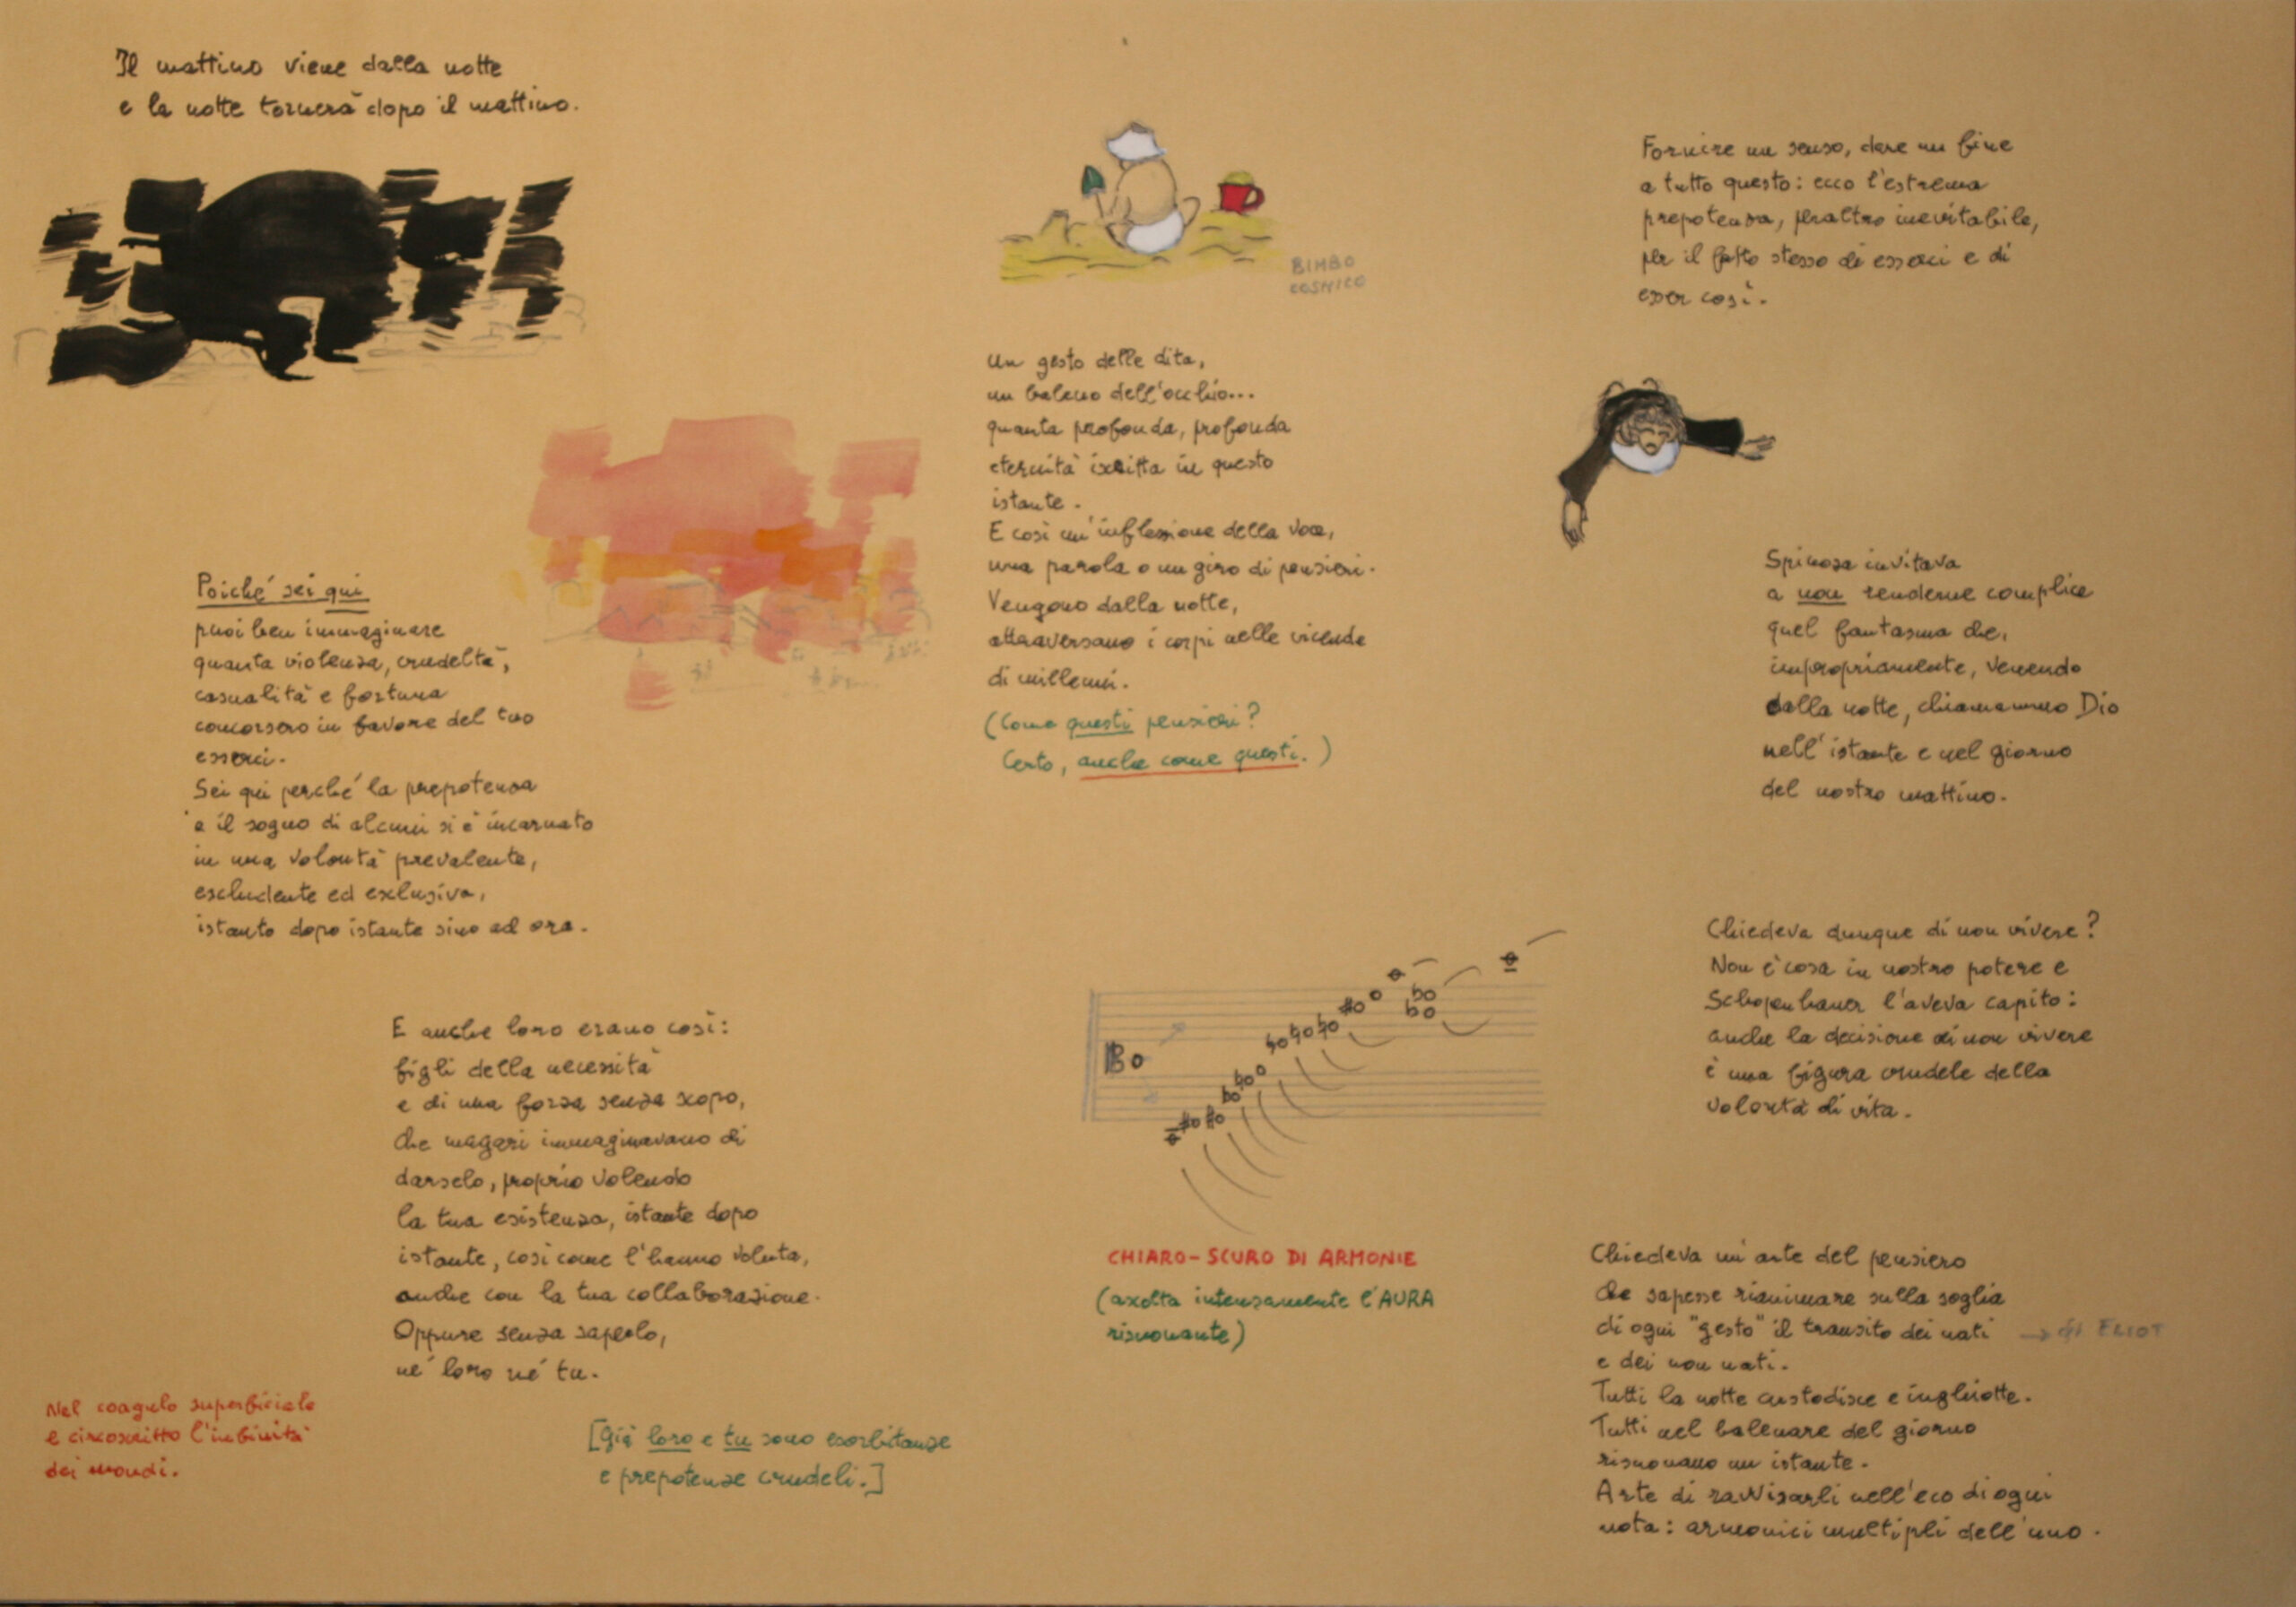 Il mattino viene dalla notte
e la notte tornerà dopo il mattino.
Poiché sei qui
puoi ben immaginare
quanta violenza, crudeltà,
casualità e fortuna
concorsero in favore del tuo
esserci.
Sei qui perché la prepotenza
e il sogno di alcuni si è incarnato
in una volontà prevalente,
escludente ed exclusiva,
istante dopo istante sino ad ora.
E anche loro erano così:
figli della necessità
e di una forza senza scopo,
che magari immaginavano di
darselo, proprio volendo
la tua esistenza, istante dopo
istante, così come l'hanno voluta,
anche con la tua collaborazione.
Oppure senza saperlo,
né loro né tu.
Nel coagulo superficiale
e circoscritto l'infinità
dei mondi.
[Già loro e tu sono esorbitanze
e prepotenze crudeli.]
BIMBO
COSMICO
Un gesto delle dita,
un baleno dell'occhio...
quanta profonda, profonda
eternità iscritta in questo
istante.
E così un'inflessione della voce,
una parola o un giro di pensieri.
Vengono dalla notte,
attraversano i corpi nelle vicende
di millenni.
(Come questi pensieri?
Certo, anche come questi.)
CHIARO-SCURO DI ARMONIE
(ascolta intensamente l'AURA
risuonante)
Fornire un senso, dare un fine
a tutto questo: ecco l'estrema
prepotenza, peraltro inevitabile,
per il fatto stesso di esserci e di
esser così.
Spinoza invitava
a non renderne complice
quel fantasma che,
impropriamente, venendo
dalla notte, chiamammo Dio
nell'istante e nel giorno
del nostro mattino.
Chiedeva dunque di non vivere?
Non è cosa in nostro potere e
Schopenhauer l'aveva capito:
anche la decisione di non vivere
è una figura crudele della
volontà di vita.
Chiedeva un'arte del pensiero
che sapesse rianimare sulla soglia
di ogni "gesto" il transito dei nati → di ELIOT
e dei non nati.
Tutti la notte custodisce e inghiotte.
Tutti nel balenare del giorno
risuonano un istante.
Arte di ravvisarli nell'eco di ogni
nota: armonici multipli dell'uno.